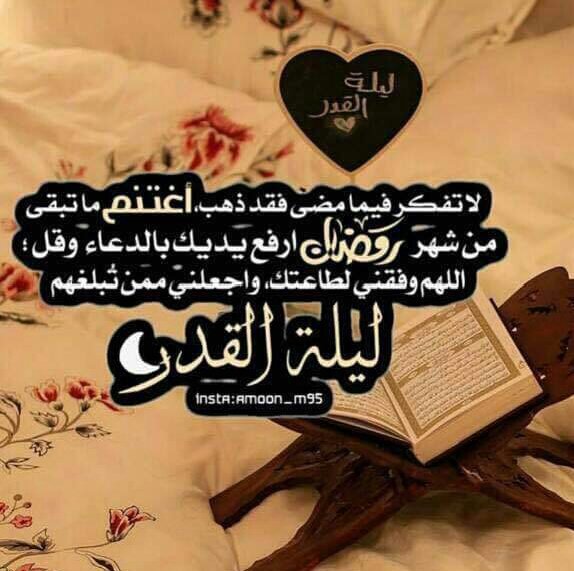 ليلة
القدر
لا تفكر فيما مضى فقد ذهب، أغتنم ما تبقى
من شهر رمضان ارفع يديك بالدعاء وقل ؛
اللهم وفقني لطاعتك، واجعلني ممن تُبلغهم
ليلة القدر
insta:amoon_m95